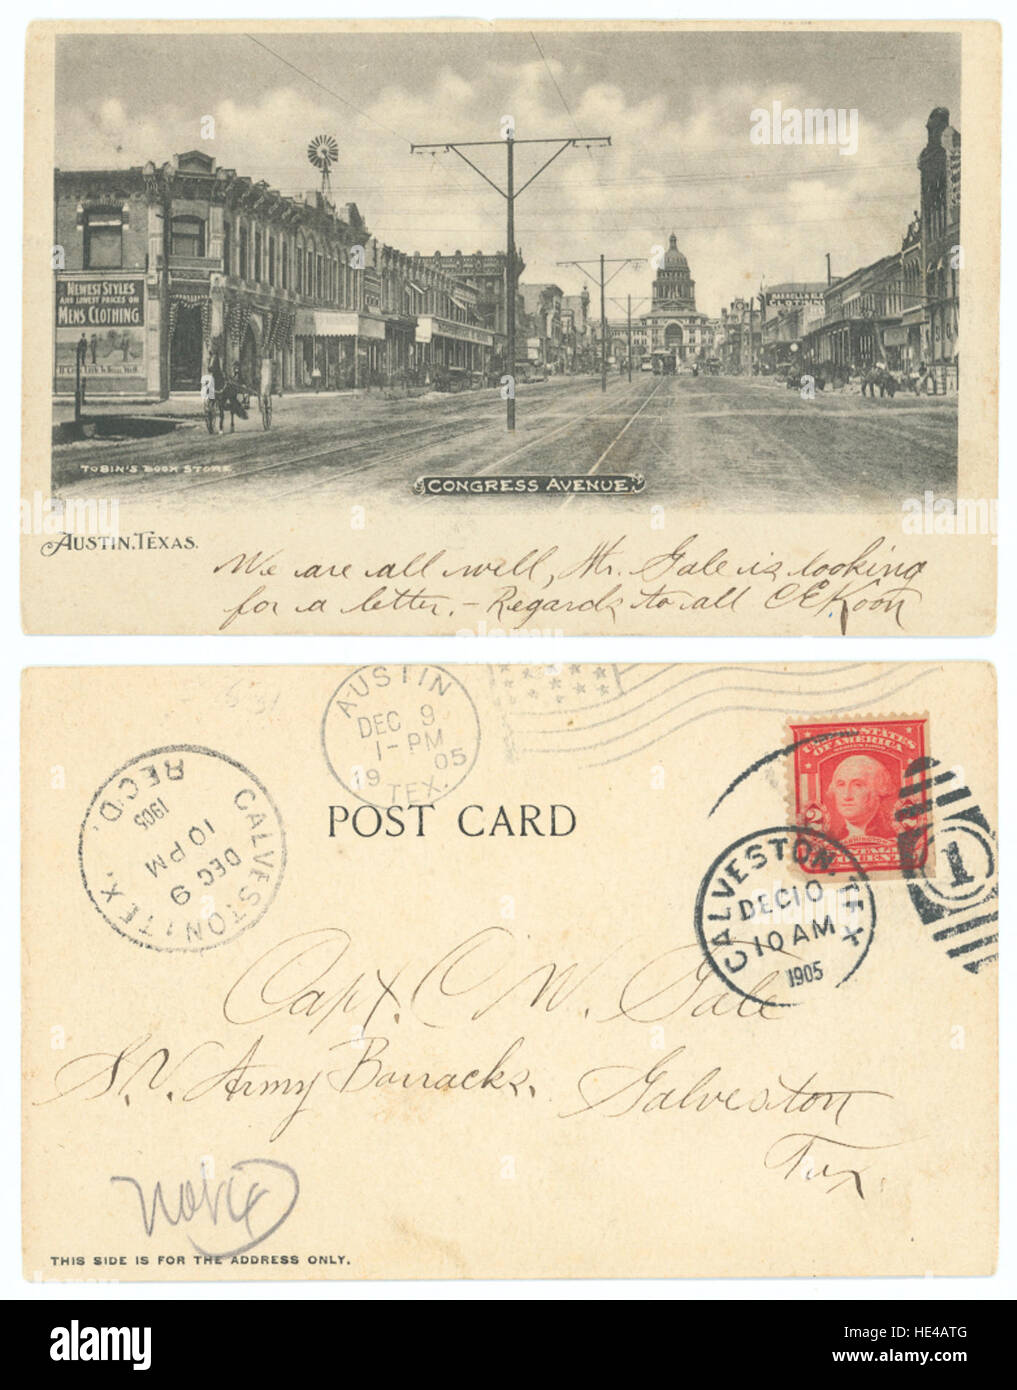 NEWEST STYLES
AND LOWEST PRICES ON
MENS CLOTHING
CLOTHING
TOBIN'S BOOK STORE
CONGRESS AVENUE
AUSTIN, TEXAS.
We are all well, Mr. Gale is looking
for a letter. - Regards to all C E Koon
AUSTIN
DEC 9
1-PM
1905
TEX.
GALVESTON, TEX.
DEC 9
10 PM
1905
REC'D.
POST CARD
UNITED STATES
OF AMERICA
2 2
GALVESTON, TEX
DEC 10
10 AM
1905
1
Capt. C W. Gale
Army Barracks. Galveston
Tex.
THIS SIDE IS FOR THE ADDRESS ONLY.
alamy
Image ID: HE4ATG
www.alamy.com